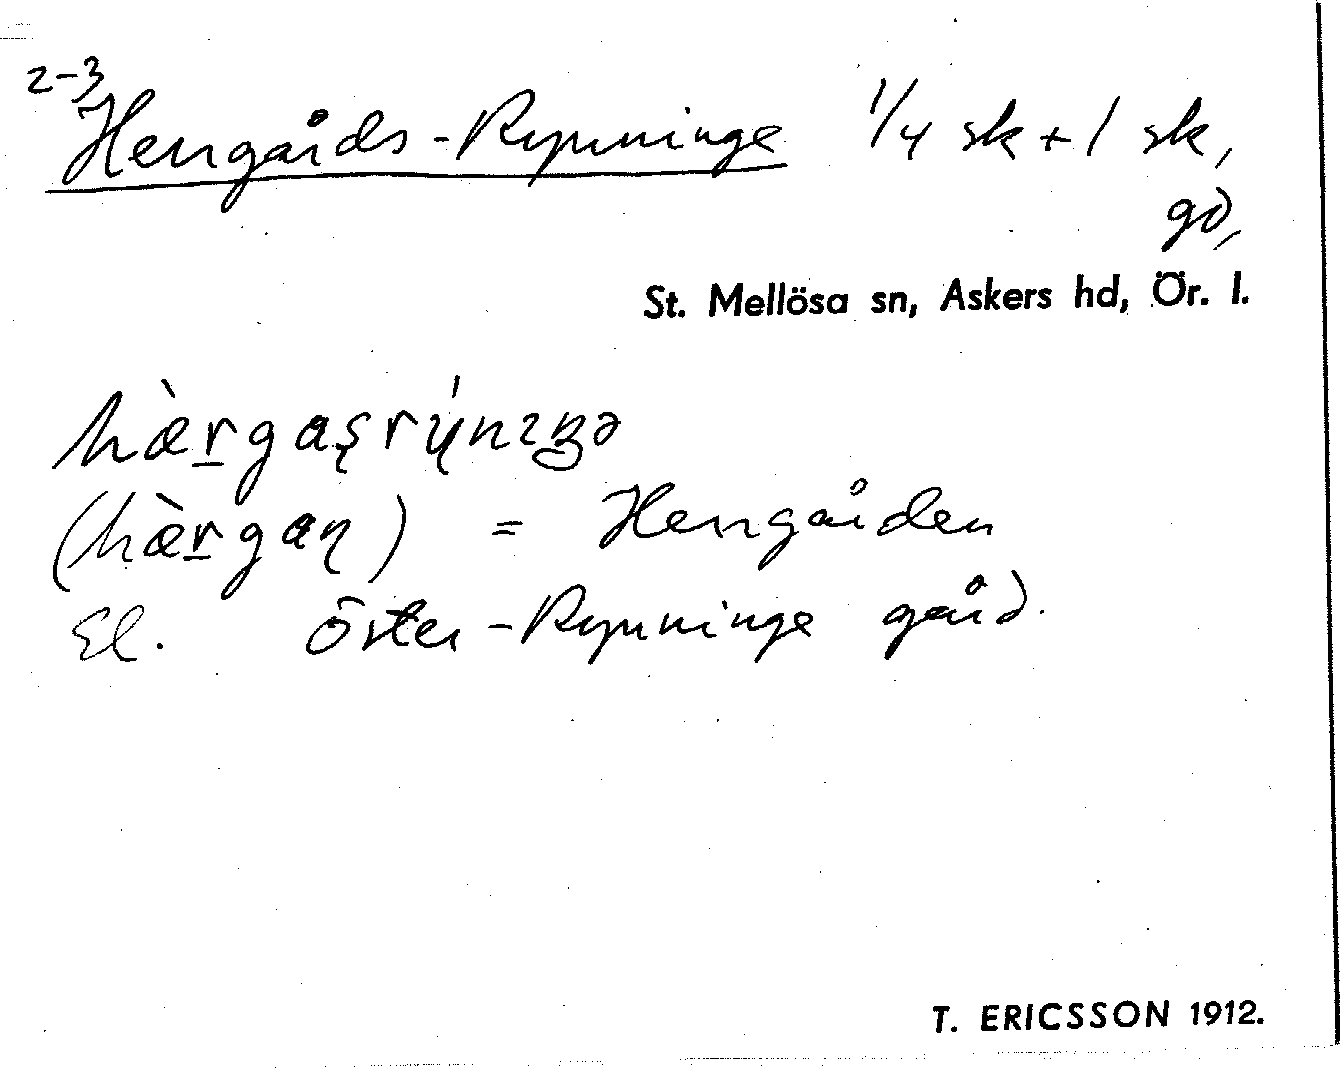 2-3
Herrgårds-Rynninge 1/4 sk + 1 sk,
gd,
St. Mellösa sn, Askers hd, Ör. l.
hærgas̨rýnıŋə
(hærgan) = Herrgården
El. Öster-Rynninge gård.
T. ERICSSON 1912.